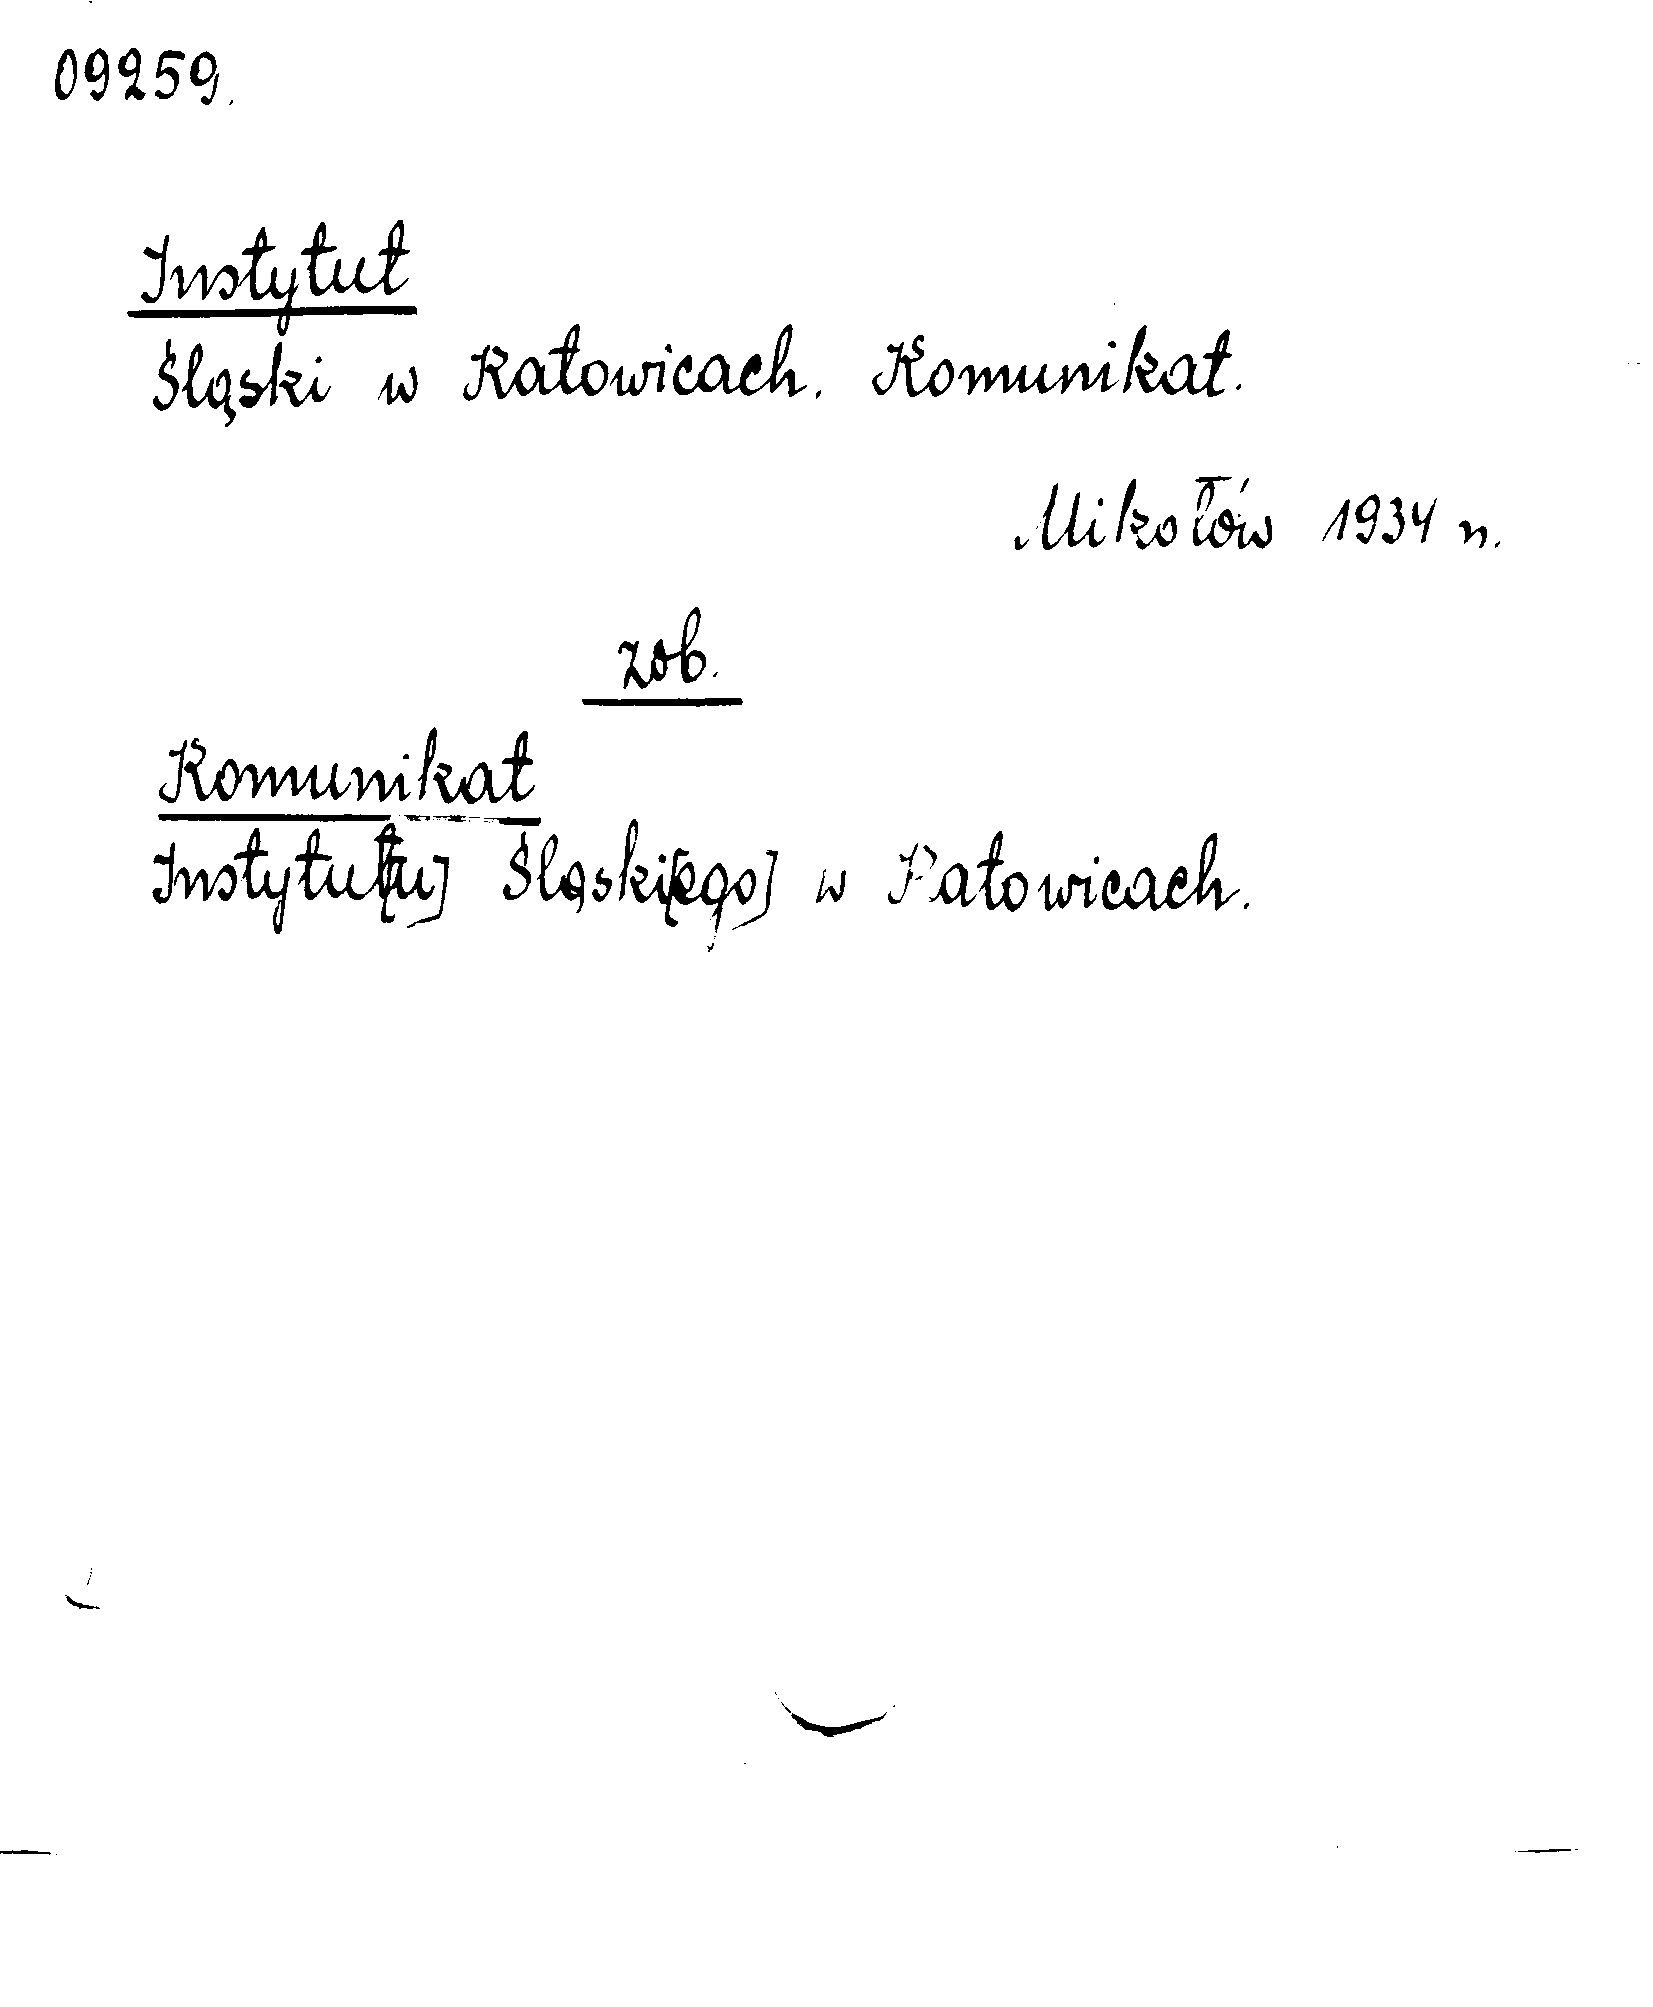 09259.
Instytut
Śląski w Katowicach. Komunikat.
Mikołów 1934 n.
zob.
Komunikat
Instytut[u] Śląski[ego] w Katowicach.